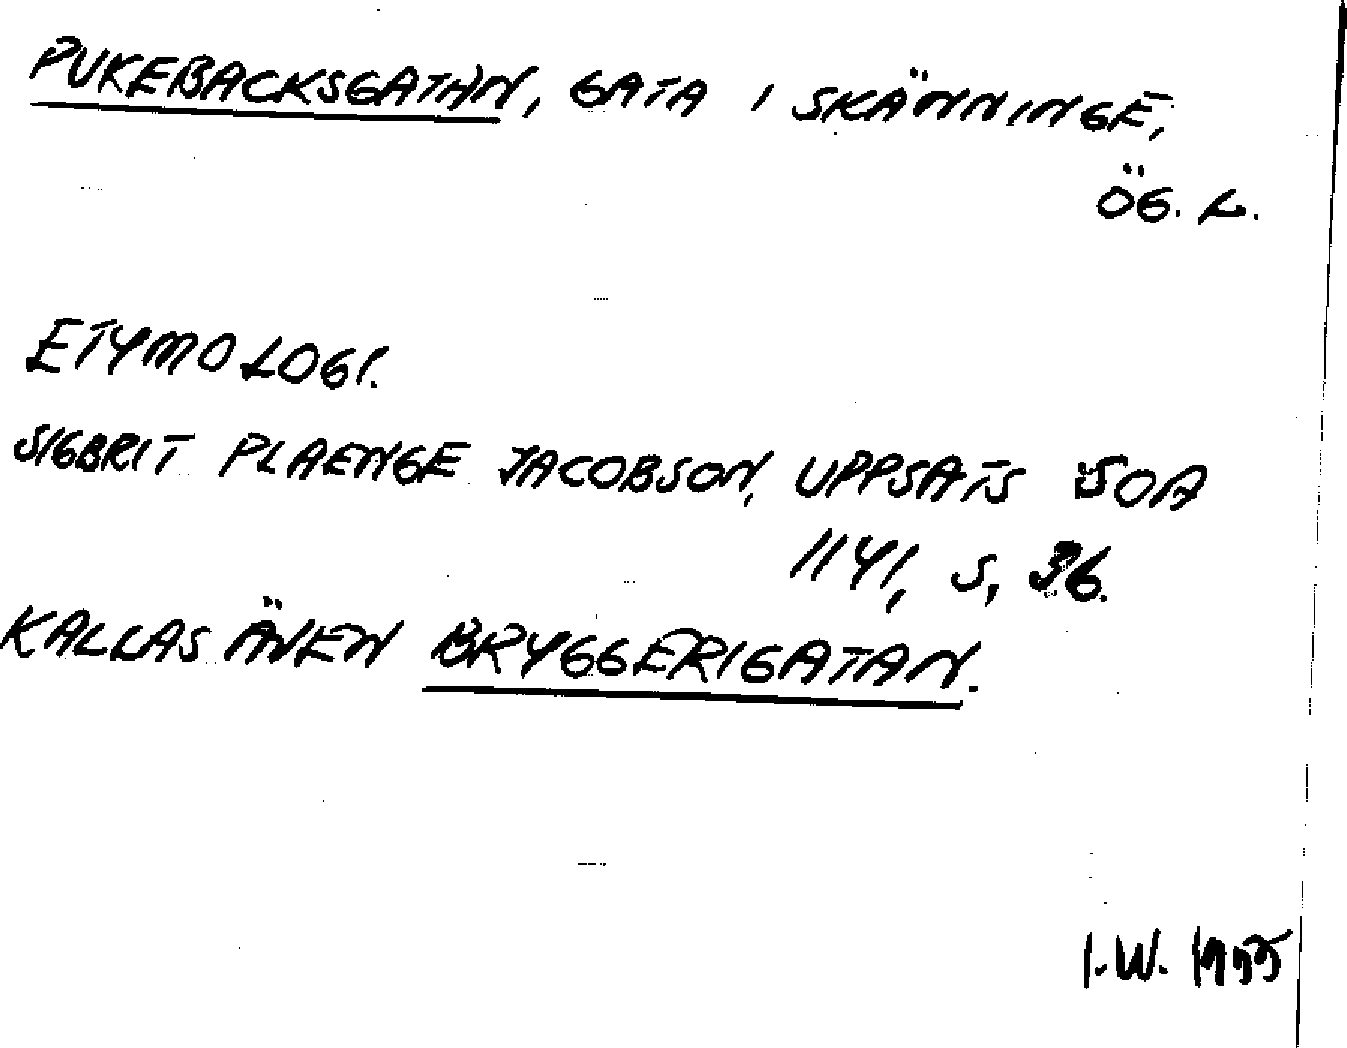 PUKEBACKSGATAN, GATA I SKÄNNINGE,
ÖG. L.
ETYMOLOGI.
SIGBRIT PLAENGE JACOBSON, UPPSATS SOA
1141, S, 36.
KALLAS ÄVEN BRYGGERIGATAN.
I.W.